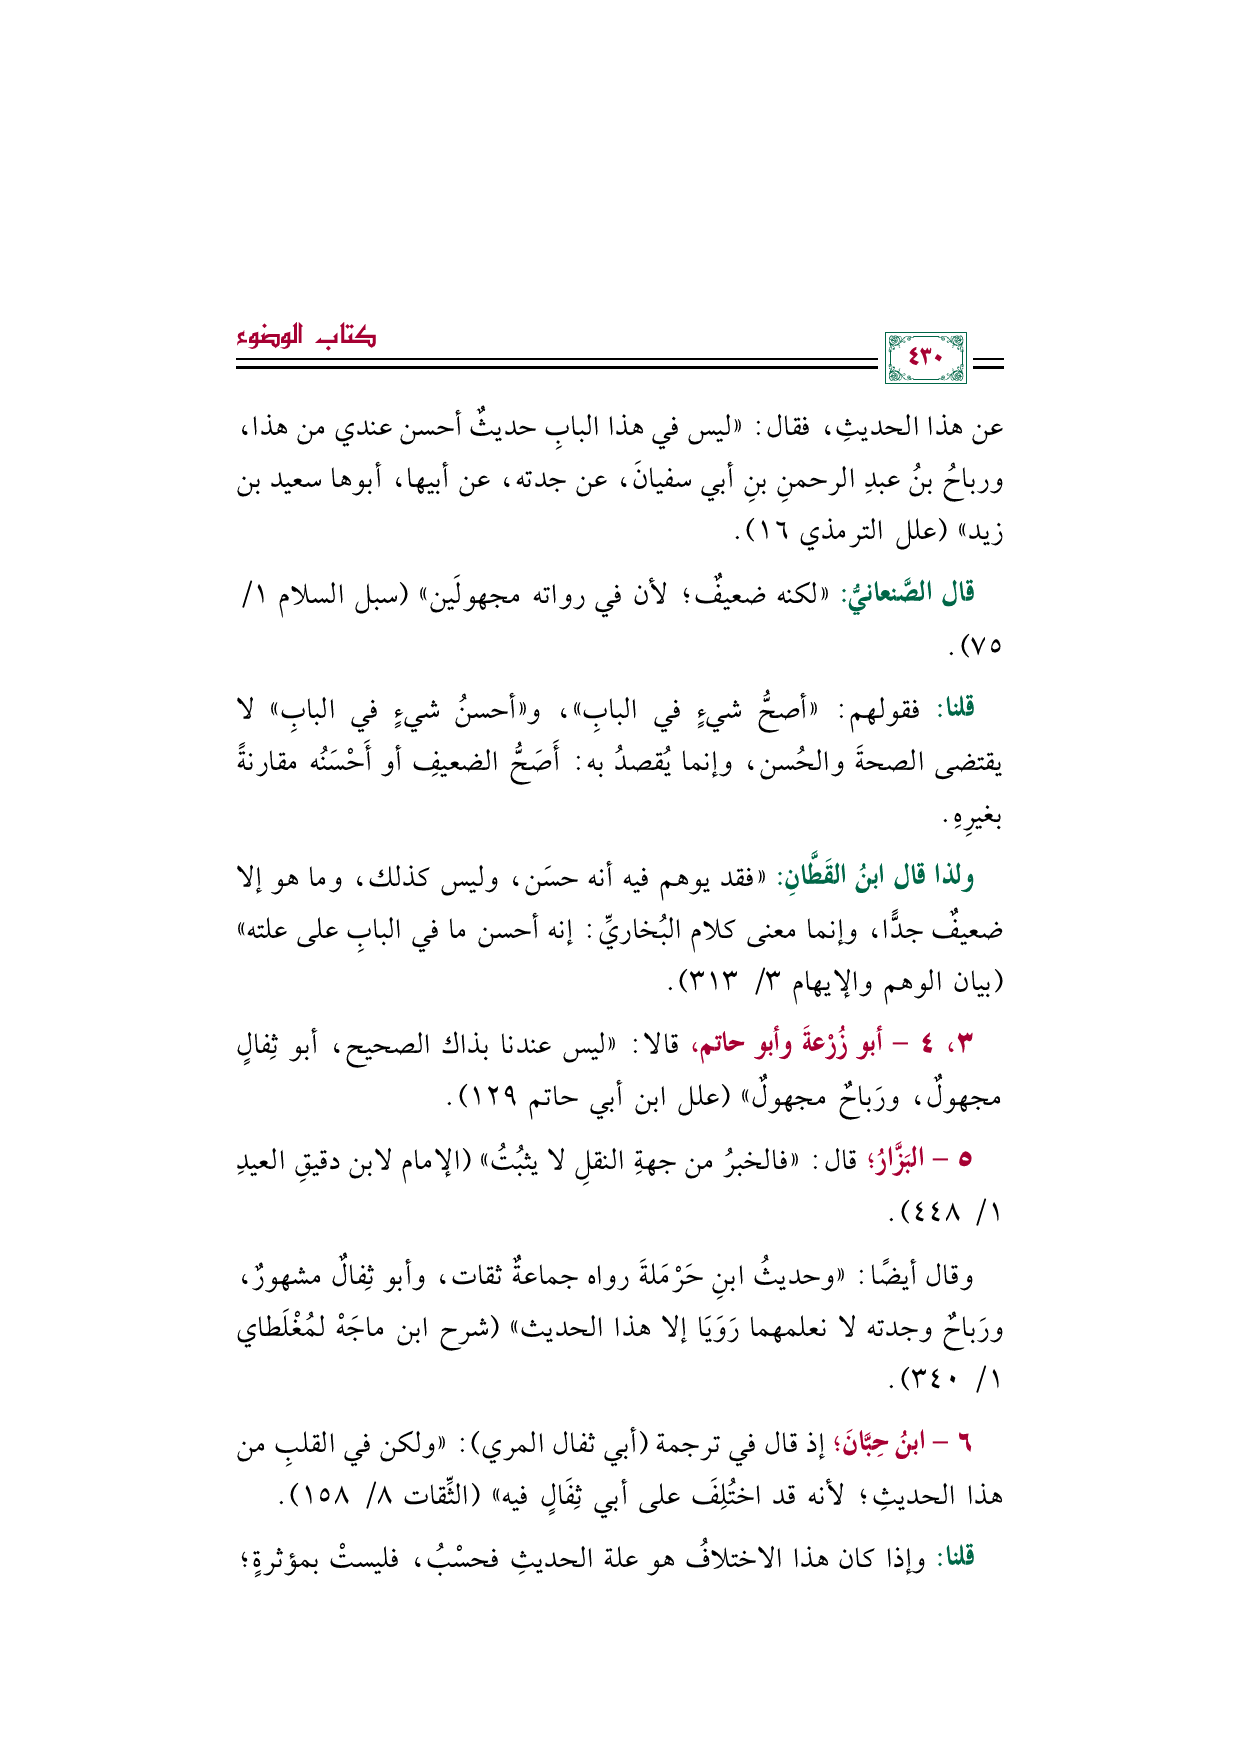 كتاب الوضوء
٤٣٠
عن هذا الحديثِ، فقال: «ليس في هذا البابِ حديثٌ أحسن عندي من هذا،
ورباحُ بنُ عبدِ الرحمنِ بنِ أبي سفيانَ، عن جدته، عن أبيها، أبوها سعيد بن
زيد» (علل الترمذي ١٦).
قال الصَّنعانيُّ: «لكنه ضعيفٌ؛ لأن في رواته مجهولَين» (سبل السلام ١/
٧٥).
قلنا: فقولهم: «أصحُّ شيءٍ في البابِ»، و«أحسنُ شيءٍ في البابِ» لا
يقتضى الصحةَ والحُسن، وإنما يُقصدُ به: أَصَحُّ الضعيفِ أو أَحْسَنُه مقارنةً
بغيرِهِ.
ولذا قال ابنُ القَطَّانِ: «فقد يوهم فيه أنه حسَن، وليس كذلك، وما هو إلا
ضعيفٌ جدًّا، وإنما معنى كلام البُخاريِّ: إنه أحسن ما في البابِ على علته»
(بيان الوهم والإيهام ٣/ ٣١٣).
٣، ٤ – أبو زُرْعةَ وأبو حاتم، قالا: «ليس عندنا بذاك الصحيح، أبو ثِفالٍ
مجهولٌ، ورَباحٌ مجهولٌ» (علل ابن أبي حاتم ١٢٩).
٥ – البَزَّارُ؛ قال: «فالخبرُ من جهةِ النقلِ لا يثبُتُ» (الإمام لابن دقيقِ العيدِ
١/ ٤٤٨).
وقال أيضًا: «وحديثُ ابنِ حَرْمَلةَ رواه جماعةٌ ثقات، وأبو ثِفالٌ مشهورٌ،
ورَباحٌ وجدته لا نعلمهما رَوَيَا إلا هذا الحديث» (شرح ابن ماجَهْ لمُغْلَطاي
١/ ٣٤٠).
٦ – ابنُ حِبَّانَ؛ إذ قال في ترجمة (أبي ثفال المري): «ولكن في القلبِ من
هذا الحديثِ؛ لأنه قد اختُلِفَ على أبي ثِفَالٍ فيه» (الثِّقات ٨/ ١٥٨).
قلنا: وإذا كان هذا الاختلافُ هو علة الحديثِ فحسْبُ، فليستْ بمؤثرةٍ؛